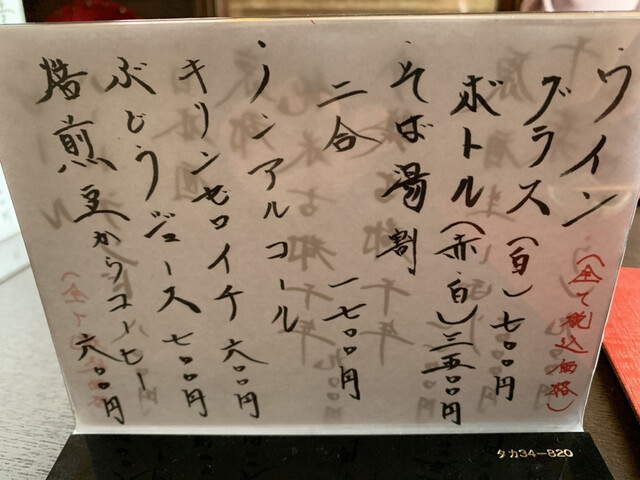 ワイン
(全て税込価格)
グラス(白)七〇〇円
ボトル(赤・白)三五〇〇円
そば湯割
二合 一七〇〇円
ノンアルコール
キリンゼロイチ 六〇〇円
ぶどうジュース 七〇〇円
焙煎豆からコーヒー 六〇〇円
タカ34-820